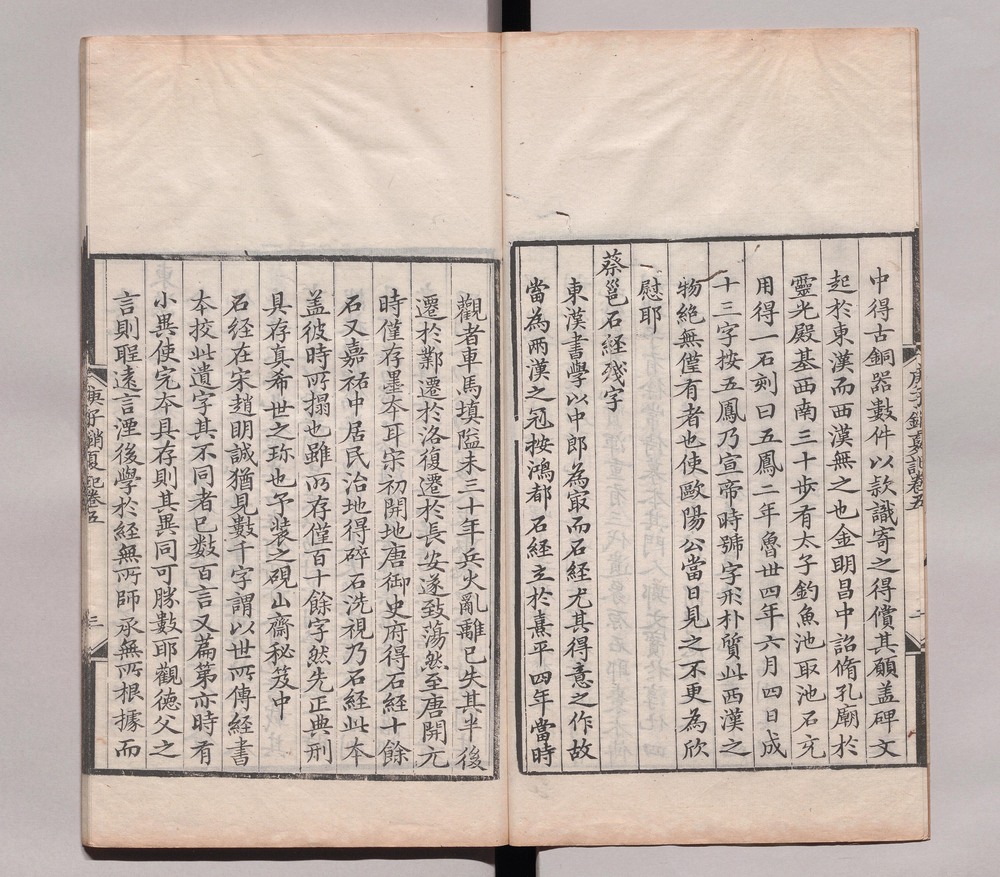 中得古銅器數件以款識寄之得償其願盖碑文
起於東漢而西漢無之也金明昌中詔脩孔廟於
靈光殿基西南三十步有太子釣魚池取池石充
用得一石刻曰五鳳二年魯丗四年六月四日成
十三字按五鳳乃宣帝時號字形朴質此西漢之
物絶無僅有者也使歐陽公當日見之不更為欣
慰耶
蔡邕石經殘字
東漢書學以中郎為㝡而石經尤其得意之作故
當為兩漢之冠按鴻都石經立於熹平四年當時
觀者車馬填隘未三十年兵火亂離已失其半後
遷於鄴遷於洛復遷於長安遂致蕩然至唐開元
時僅存墨夲耳宋初開地唐御史府得石經十餘
石又嘉祐中居民治地得碎石洗視乃石經此本
盖彼時所搨也雖所存僅百十餘字然先正典刑
具存真希世之珎也予装之硯山齋秘笈中
石經在宋趙明誠猶見數千字謂以世所傳經書
夲校此遺字其不同者已数百言又篇第亦時有
小異使完夲具存則其異同可勝數耶觀德父之
言則聖遠言湮後學於經無所師承無所根據而
庚子銷夏記卷五
三